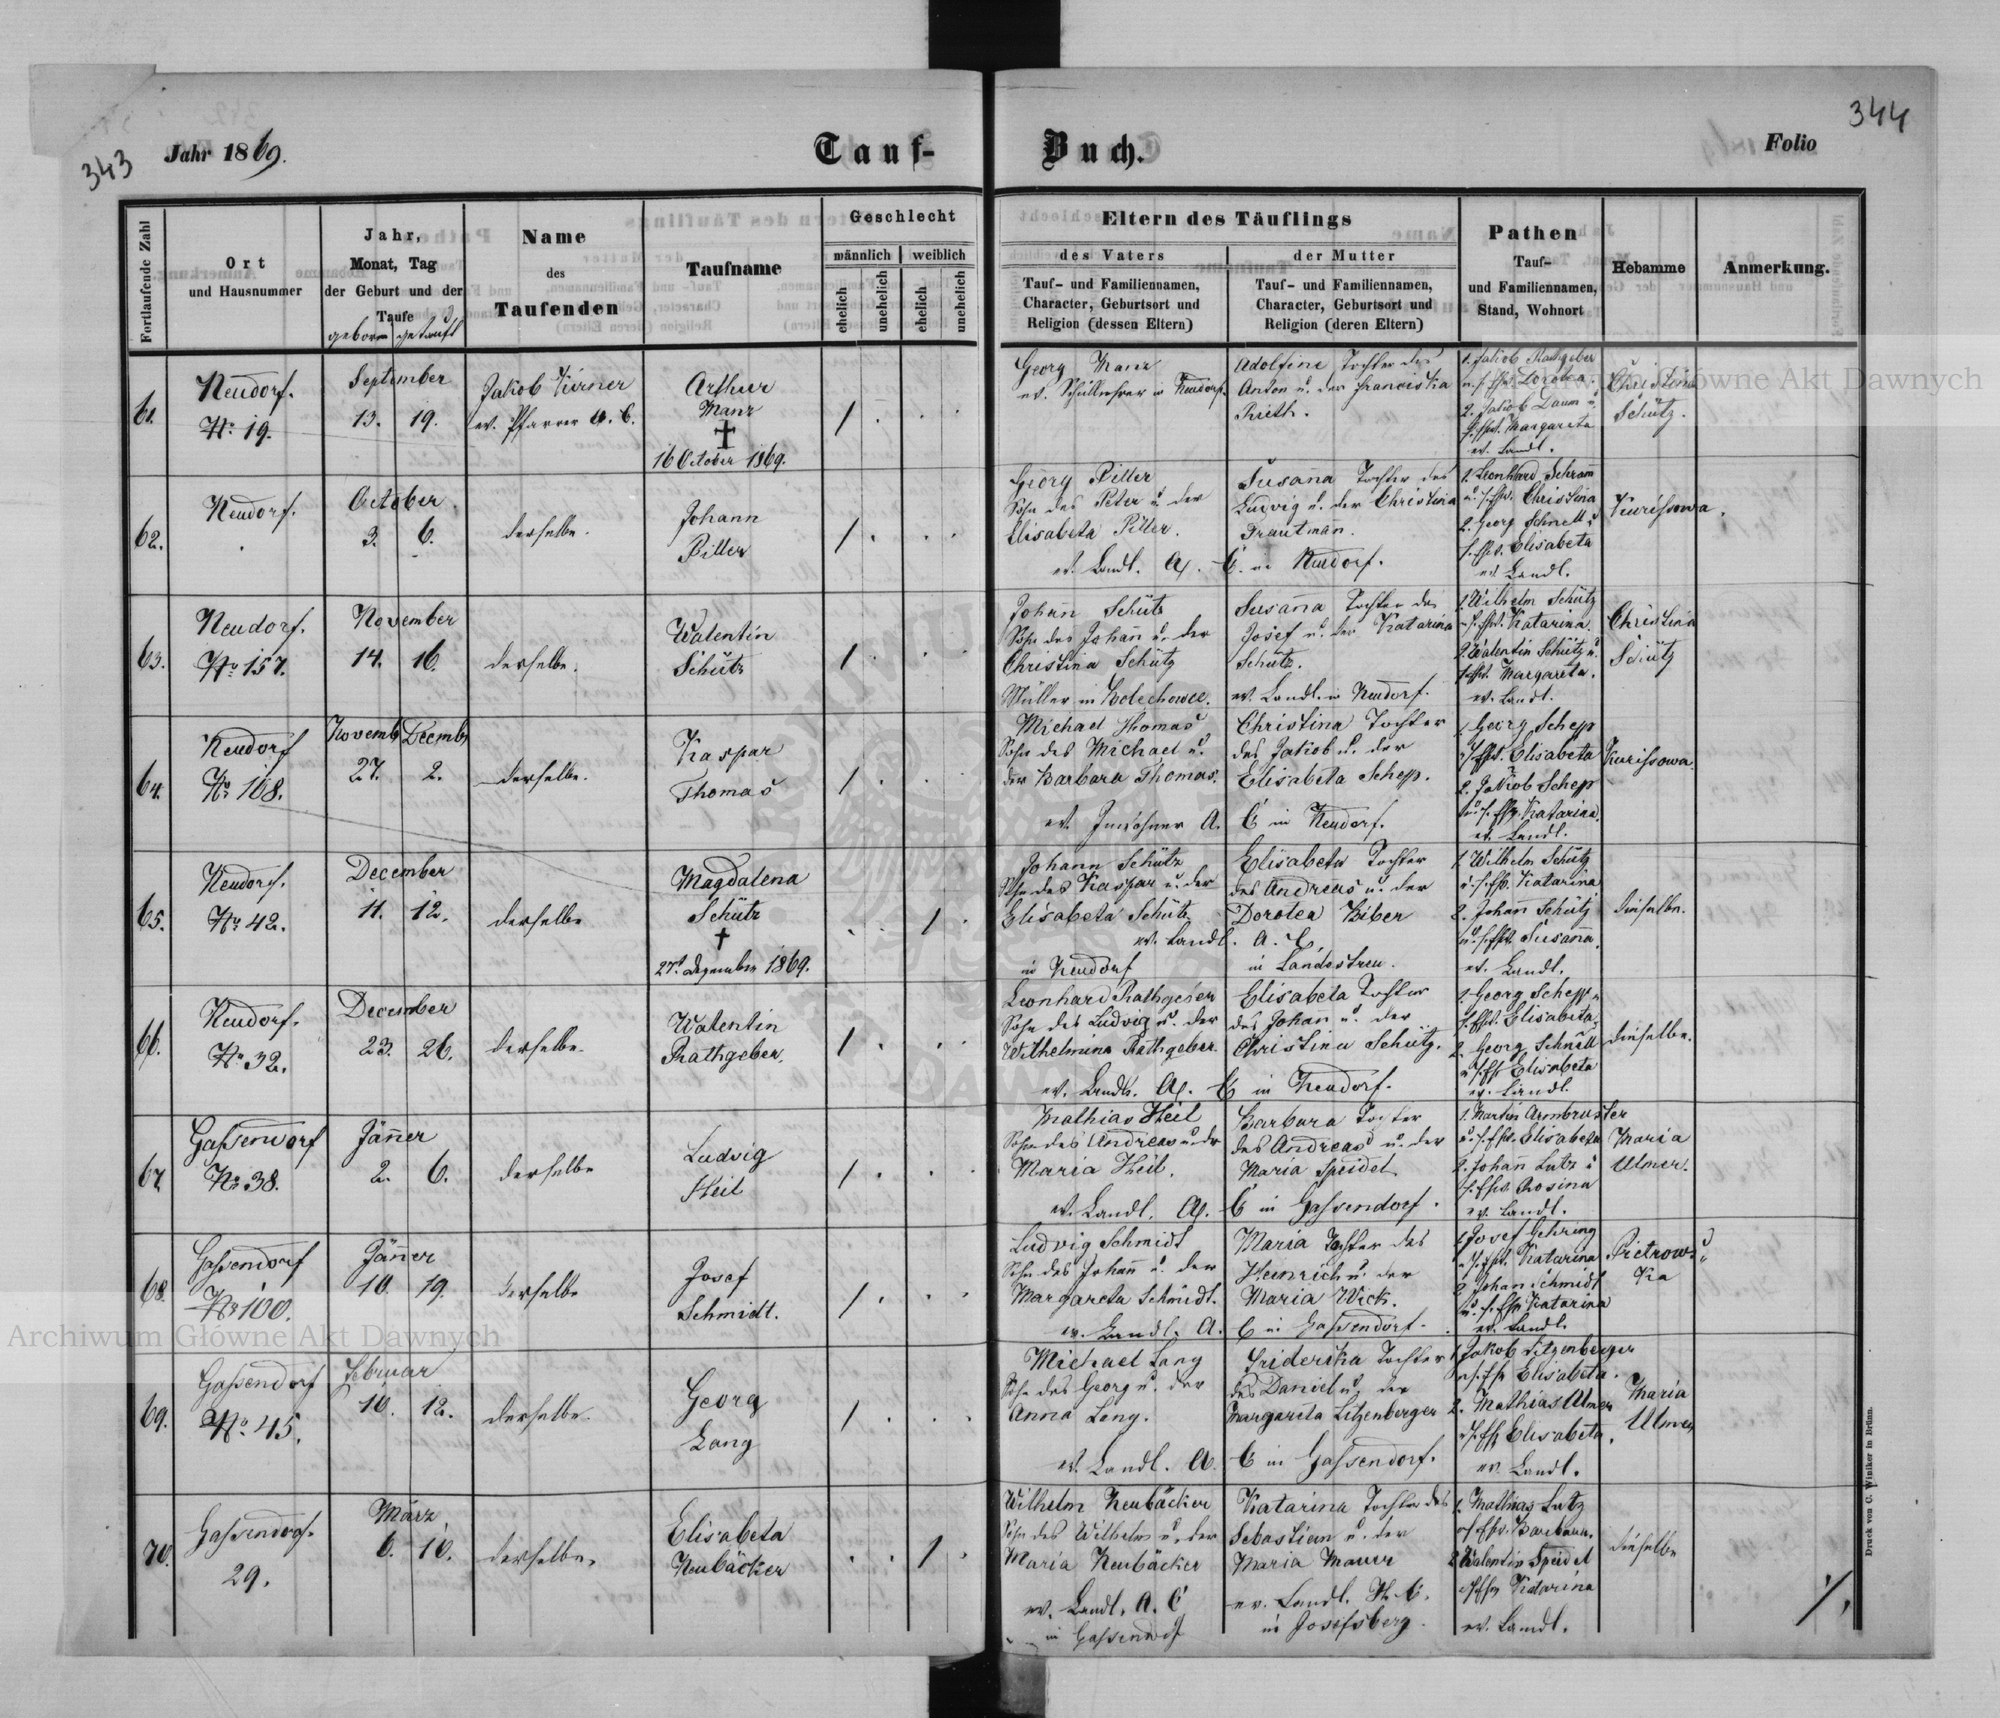 343
Jahr 1869.
Tauf-
Buch.
Folio
344
Fortlaufende Zahl
Ort
und Hausnummer
Jahr,
Monat, Tag
der Geburt und der
Taufe
geboren getauft
Name
des
Taufenden
Taufname
Geschlecht
männlich
weiblich
ehelich
unehelich
ehelich
unehelich
Eltern des Täuflings
des Vaters
Tauf- und Familiennamen,
Character, Geburtsort und
Religion (dessen Eltern)
der Mutter
Tauf- und Familiennamen,
Character, Geburtsort und
Religion (deren Eltern)
Pathen
Tauf-
und Familiennamen,
Stand, Wohnort
Hebamme
Anmerkung.
61.
Neudorf.
No 19.
September
13. 19.
Jakob Kirner
ev. Pfarrer A. C.
Arthur
Manz
†
16 October 1869.
Georg Manz
ev. Schullehrer in Neudorf.
Adolfine Tochter des
Anton u. der Franciska
Rieth.
1. Jakob Rathgeber
Dorotea
2. Jakob Daum u.
Margareta
ev. Landl.
Christina
Schütz.
62.
Neudorf.
October
3. 6.
derselbe.
Johann
Piller
Georg Piller
Sohn des Peter u. der
Elisabeta Piller.
ev. Landl. A. C. in Neudorf.
Susanna Tochter des
Ludvig u. der Christina
Trautmann.
1. Leonhard Schramm
Christina
2. Georg Schnell u
Elisabeta
ev. Landl.
Kurissowa.
63.
Neudorf.
No 157.
November
14. 16.
derselbe.
Walentin
Schütz
Johann Schütz
Sohn des Johann u. der
Christina Schütz
Müller in Bolechowce.
Susanna Tochter des
Josef u. der Katarina
Schütz.
ev. Landl. in Neudorf.
1. Wilhelm Schütz
Katarina.
2. Walentin Schütz u.
Margareta.
ev. Landl.
Christina
Schütz
64.
Neudorf
No 168.
Novemb Decemb
27. 2.
derselbe.
Kaspar
Thomas
Michael Thomas
Sohn des Michael u.
der Barbara Thomas.
ev. Inwohner A. C in Neudorf.
Christina Tochter
des Jakob u. der
Elisabeta Schepp.
1. Georg Schepp
Elisabeta
2. Jakob Schepp
Katarina.
ev. Landl.
Kurissowa.
65.
Neudorf.
No 42.
December
11. 12.
derselbe
Magdalena
Schütz
†
27t Dezember 1869.
Johann Schütz
Sohn des Kaspar u. der
Elisabeta Schütz
ev. Landl. A. C.
in Neudorf
Elisabeta Tochter
des Andreas u. der
Dorotea Biber
in Landestreu.
1. Wilhelm Schütz
Katarina
2. Johann Schütz
Susanna.
ev. Landl.
dieselbe.
66.
Neudorf.
No 32.
December
23. 26.
derselbe.
Walentin
Rathgeber.
Leonhard Rathgeber
Sohn des Ludvig u. der
Wilhelmina Rathgeber.
ev. Landl. A. C in Neudorf.
Elisabeta Tochter
des Johann u. der
Christina Schütz.
1. Georg Schepp u
Elisabeta
2. Georg Schnell
Elisabeta
ev. Landl.
dieselbe.
67.
Gassendorf
No 38.
Jänner
2. 6.
derselbe
Ludvig
Heil
Mathias Heil
Sohn des Andreas u. der
Maria Heil.
ev. Landl. A. C in Gassendorf.
Barbara Tochter
des Andreas u. der
Maria Speidel
1. Martin Armbruster
Elisabeta
2. Johann Lutz u
Rosina
ev. Landl.
Maria
Ulmer.
68.
Gassendorf
No 100.
Jänner
10. 19.
derselbe
Josef
Schmidt.
Ludvig Schmidt
Sohn des Johann u. der
Margareta Schmidt.
ev. Landl. A. C in Gassendorf.
Maria Tochter des
Heinrich u. der
Maria Wick.
1. Josef Gehring
Katarina
2. Johan Schmidt
Katarina
ev. Landl.
Pietrows
Ka
69.
Gassendorf
No 45.
Februar
10. 12.
derselbe.
Georg
Lang
Michael Lang
Sohn des Georg u. der
Anna Lang.
ev. Landl. A. C in Gassendorf.
Friderika Tochter
des Daniel u. der
Margarita Litzenberger
1. Jakob Litzenberger
Elisabeta.
2. Mathias Ulmer
Elisabeta.
ev. Landl.
Maria
Ulmer
70.
Gassendorf.
29.
März
6. 10.
derselbe.
Elisabeta
Neubäcker
Wilhelm Neubäcker
Sohn des Wilhelm u. der
Maria Neubäcker
ev. Landl. A. C
in Gassendorf
Katarina Tochter des
Sebastian u. der
Maria Mauer
ev. Landl. H. C.
in Josefsberg.
1. Mathias Lutz
Barbara.
2. Walentin Speidel
Katarina
ev. Landl.
dieselbe
Druck von C. Winiker in Brünn.
Archiwum Główne Akt Dawnych
Archiwum Główne Akt Dawnych